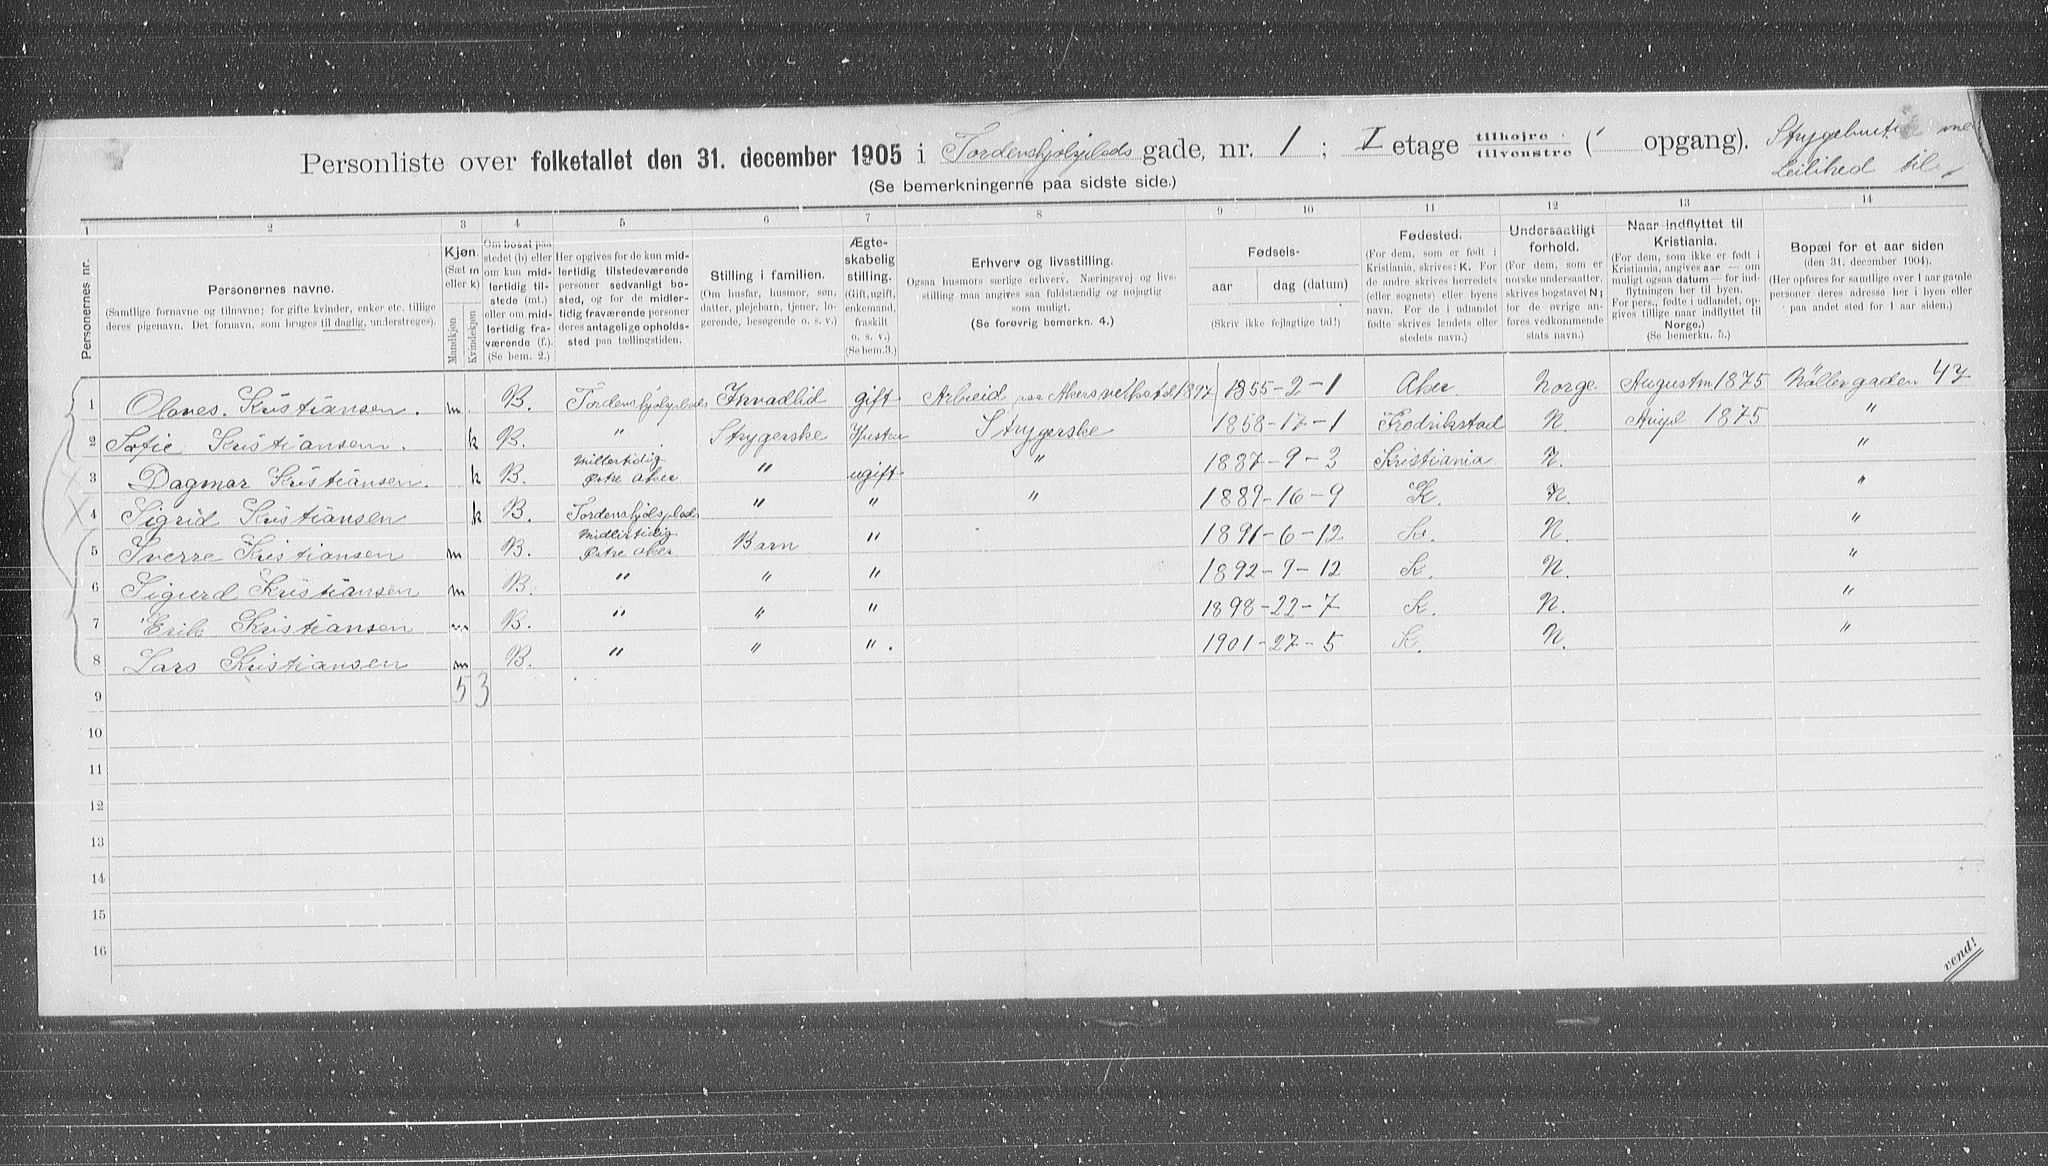 Personliste over folketallet den 31. december 1905 i Tordenskjoldsplads gade, nr. 1 ; I etage tilhøjre tilvenstre ( opgang).
Leilihed til
(Se bemerkningerne paa sidste side.)
1 2 3 4 5 6 7 8 9 10 11 12 13 14
Personernes nr.
Personernes navne.
(Samtlige fornavne og tilnavne; for gifte kvinder, enker etc. tillige deres pigenavn. Det fornavn, som bruges til daglig, understreges).
Kjøn.
(Sæt m eller k)
Mandkjøn
Kvindekjøn
Om bosat paa stedet (b) eller om kun midlertidig tilstede (mt.) eller om midlertidig fraværende (f.). (Se bem. 2.)
Her opgives for de kun midlertidig tilstedeværende personer sedvanligt bosted, og for de midlertidig fraværende personer deres antagelige opholdssted paa tællingstiden.
Stilling i familien.
(Om husfar, husmor, søn, datter, plejebarn, tjener, logerende, besøgende o. s. v.)
Ægteskabelig stilling.
(Gift, ugift, enkemand, fraskilt o. s. v.)
(Se bem. 3.)
Erhverv og livsstilling.
Ogsaa husmors særlige erhverv. Næringsvej og livsstilling maa angives saa fuldstændig og nøjagtig som muligt.
(Se forøvrig bemerkn. 4.)
Fødsels-
aar dag (datum)
(Skriv ikke fejlagtige tal!)
Fødested.
(For dem, som er født i Kristiania, skrives: K. For de andre skrives herredets (eller sognets) eller byens navn. For de i udlandet fødte skrives landets eller stedets navn.)
Undersaatligt forhold.
(For dem, som er norske undersaatter, skrives bogstavet N; for de øvrige anføres vedkommende stats navn.)
Naar indflyttet til Kristiania.
(For dem, som ikke er født i Kristiania, angives aar — om muligt ogsaa datum — for indflytningen her til byen. For pers., fødte i udlandet, opgives tillige naar indflyttet til Norge.) (Se bemerkn. 5.)
Bopæl for et aar siden
(den 31. december 1904).
(Her opføres for samtlige over 1 aar gamle personer deres adresse her i byen eller paa andet sted for 1 aar siden.)
1 Olaves. Kristiansen. m. B. Tordenskjoldsplads Invadlid gift Arbeid paa Akersverksted 1897 1855-2-1 Aker Norge Augustm 1875 Møllergaden 47
2 Sofie Kristiansen. k B. " Strygerske Hustru Strygerske 1858-17-1 Fredrikstad N. 1875 "
3 Dagmar Kristiansen. k B. Østre aker " ugift " 1887-9-3 Kristiania N. "
4 Sigrid Kristiansen k B. Tordenskjolsplads " " " 1889-16-9 K. N. "
5 Sverre Kristiansen m B. Midlirtidig Østre aker Barn " 1891-6-12 K. N. "
6 Sigurd Kristiansen m B. " " " 1892-9-12 K. N. "
7 Erik Kristiansen m B. " " " 1898-22-7 K. N. "
8 Lars Kristiansen m B. " " ". 1901-27-5 K. N. "
9 5 3
10
11
12
13
14
15
16
vend!